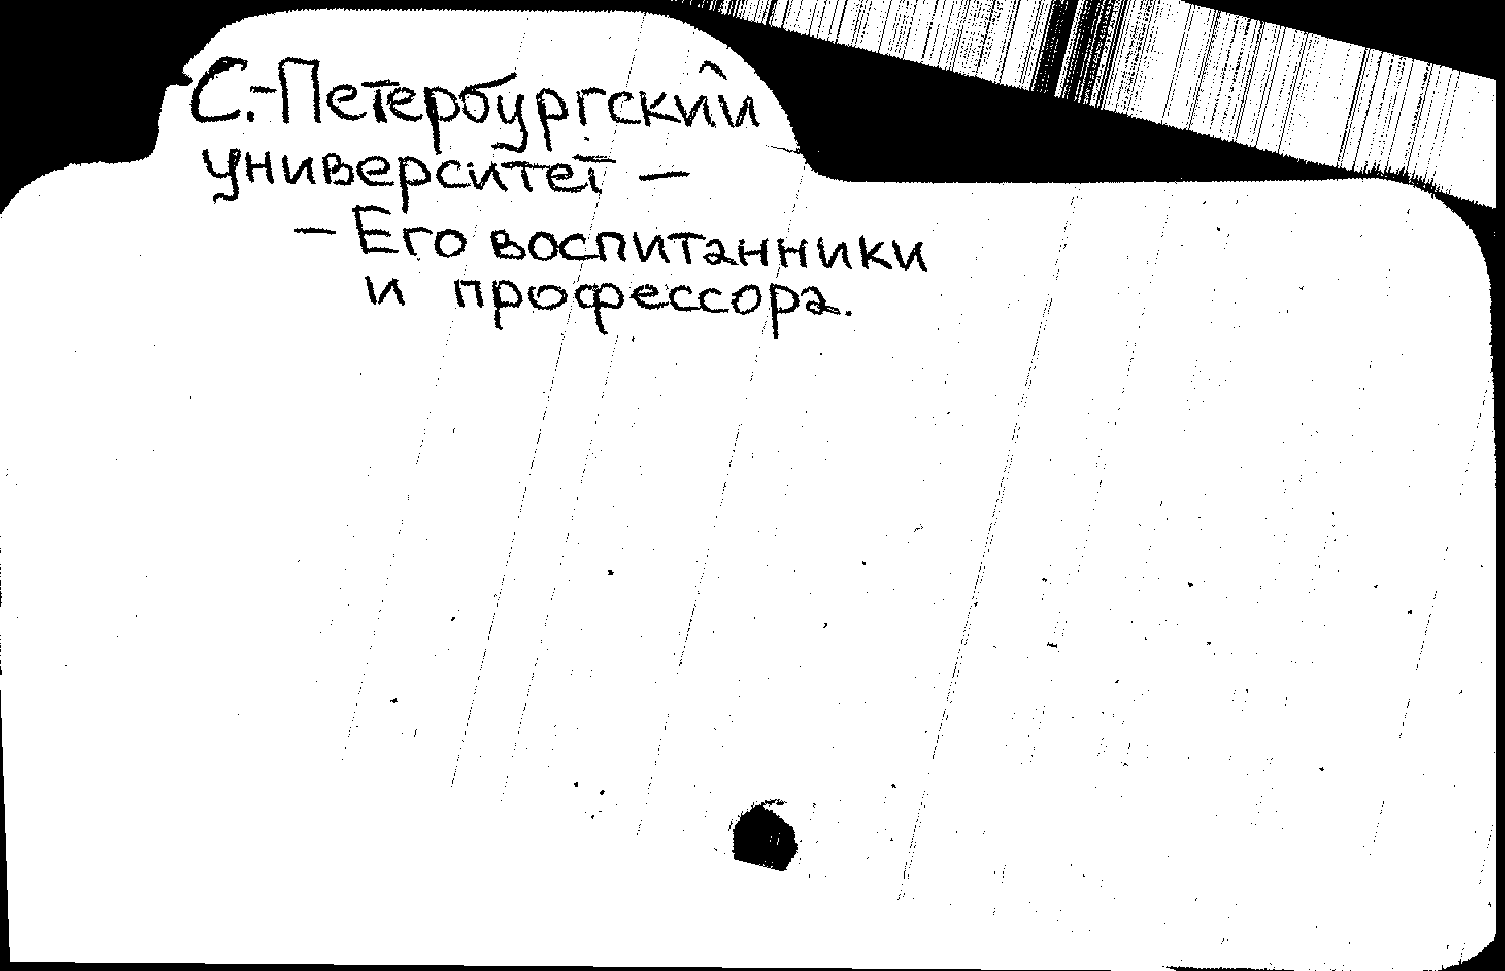 С.-Петербургский
университет —
— Его воспитанники
и профессора.